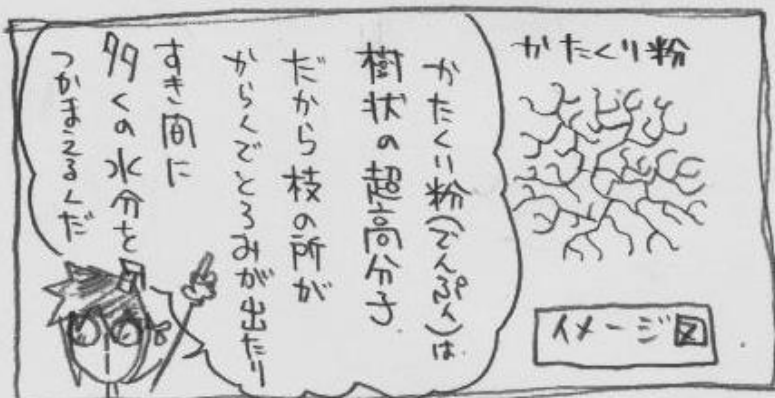 かたくり粉
イメージ図
かたくり粉(でんぷん)は
樹状の超高分子
だから枝の所が
からんでとろみが出たり
すき間に
多くの水分を
つかまえるんだ